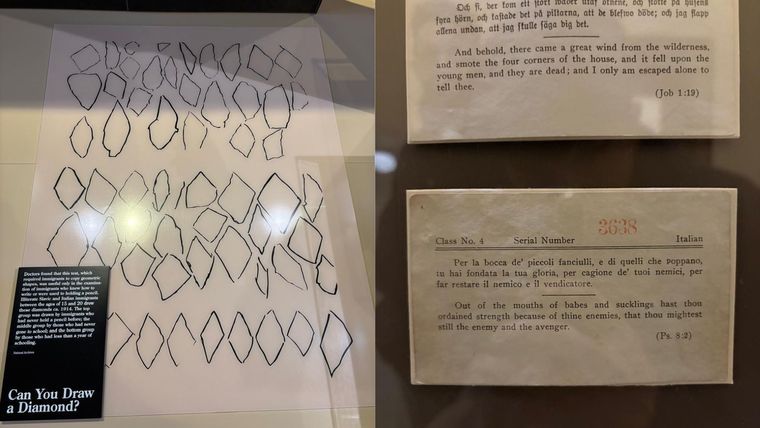 Doctors found that this test, which
required immigrants to copy geometric
shapes, was useful only in the examina-
tion of immigrants who knew how to
write or were used to holding a pencil.
Illiterate Slavic and Italian immigrants
between the ages of 15 and 20 drew
these diamonds ca. 1914. The top
group was drawn by immigrants who
had never held a pencil before; the
middle group by those who had never
gone to school; and the bottom group
by those who had less than a year of
schooling.
National Archives
Can You Draw
a Diamond?
Och si, der kom ett stort wäder utaf öknene, och stötte på husens
fyra hörn, och kastade det på piltarna, att de blefwo döde; och jag slapp
allena undan, att jag skulle säga dig det.
And behold, there came a great wind from the wilderness,
and smote the four corners of the house, and it fell upon the
young men, and they are dead; and I only am escaped alone to
tell thee.
(Job 1:19)
3638
Class No. 4 Serial Number Italian
Per la bocca de' piccoli fanciulli, e di quelli che poppano,
tu hai fondata la tua gloria, per cagione de' tuoi nemici, per
far restare il nemico e il vendicatore.
Out of the mouths of babes and sucklings hast thou
ordained strength because of thine enemies, that thou mightest
still the enemy and the avenger.
(Ps. 8:2)